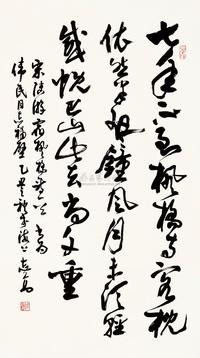 七年不到楓橋寺客枕
依然半夜鐘風月未須輕
感慨巴山此去尚千重
宋陸游宿楓橋
偉民同志補壁 乙丑